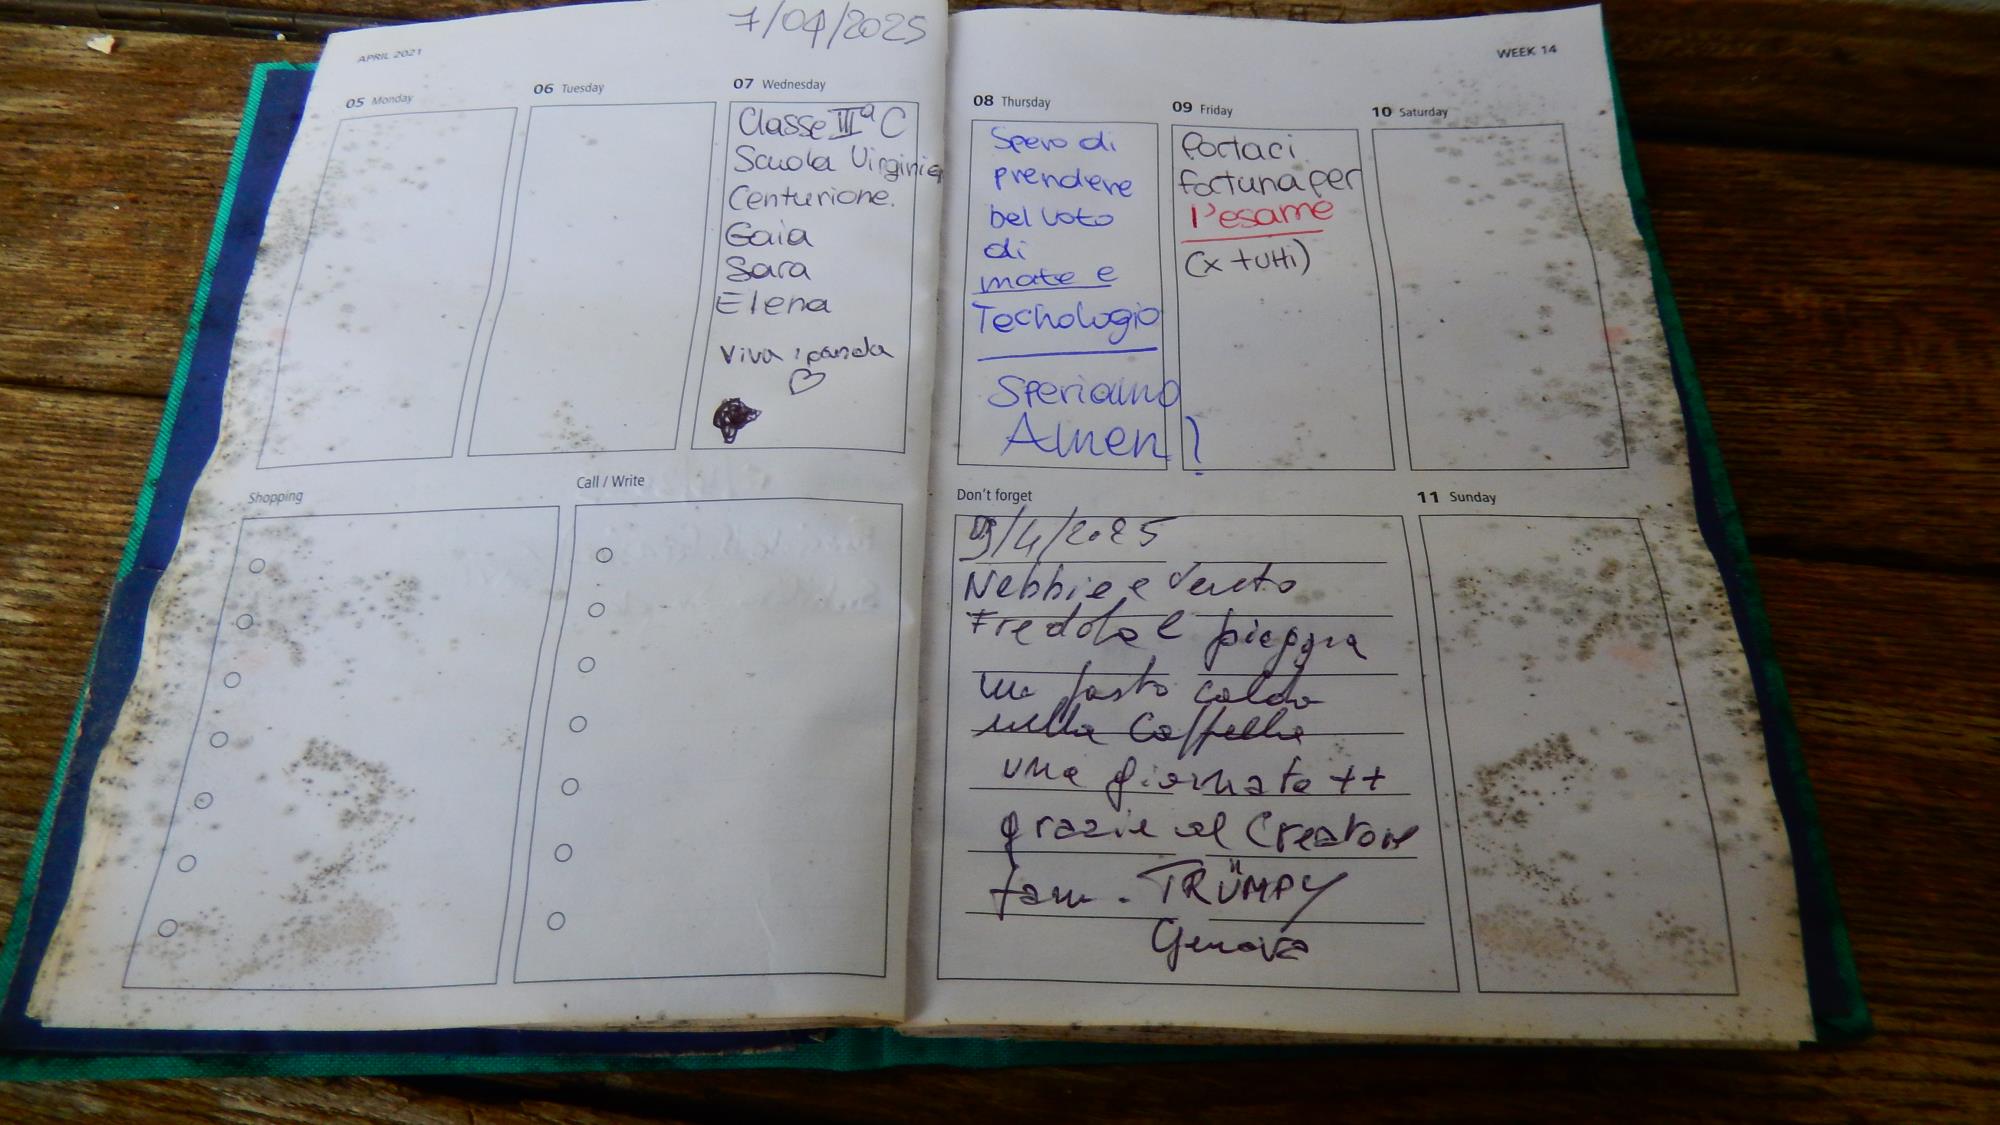 7/04/2025
APRIL 2021
05 Monday
06 Tuesday
07 Wednesday
Classe IIIª C
Scuola Virginia
Centurione.
Gaia
Sara
Elena
Viva i panda
Shopping
Call / Write
WEEK 14
08 Thursday
Spero di
prendere
bel voto
di
mate e
Tecnologia
Speriamo
Amen!
09 Friday
Portaci
fortuna per
l'esame
(x tutti)
10 Saturday
Don't forget
9/4/2025
Nebbie e Vento
Freddo e pioggia
un pasto caldo
nella Cappella
una giornata ++
grazie al Creatore
fam. TRÜMPY
Genova
11 Sunday